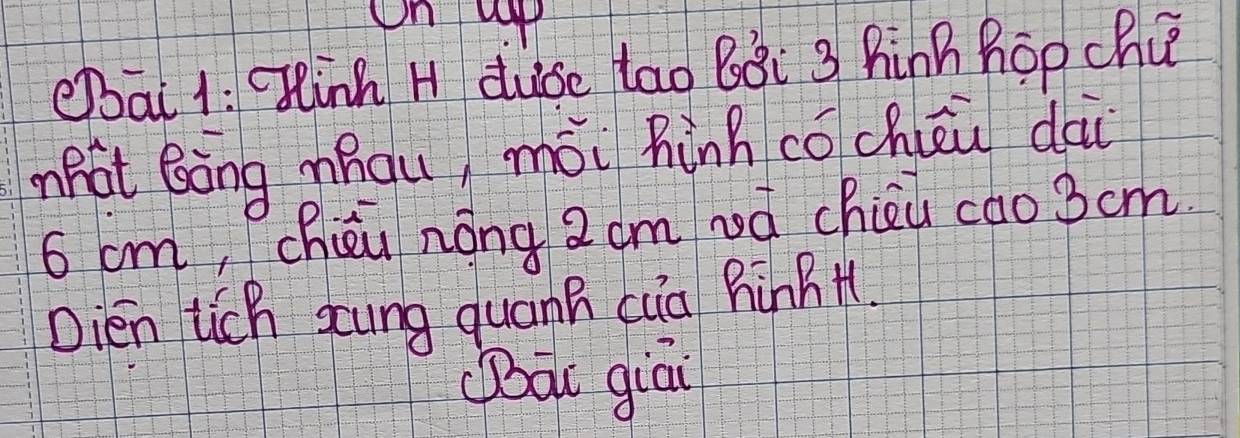 Ôn tập
Bài 1: Hình H được tạo bởi 3 hình hộp chữ
nhật bằng nhau, mỗi hình có chiều dài
6 cm, chiều rộng 2 cm và chiều cao 3 cm.
Diện tích xung quanh của hình H.
Bài giải